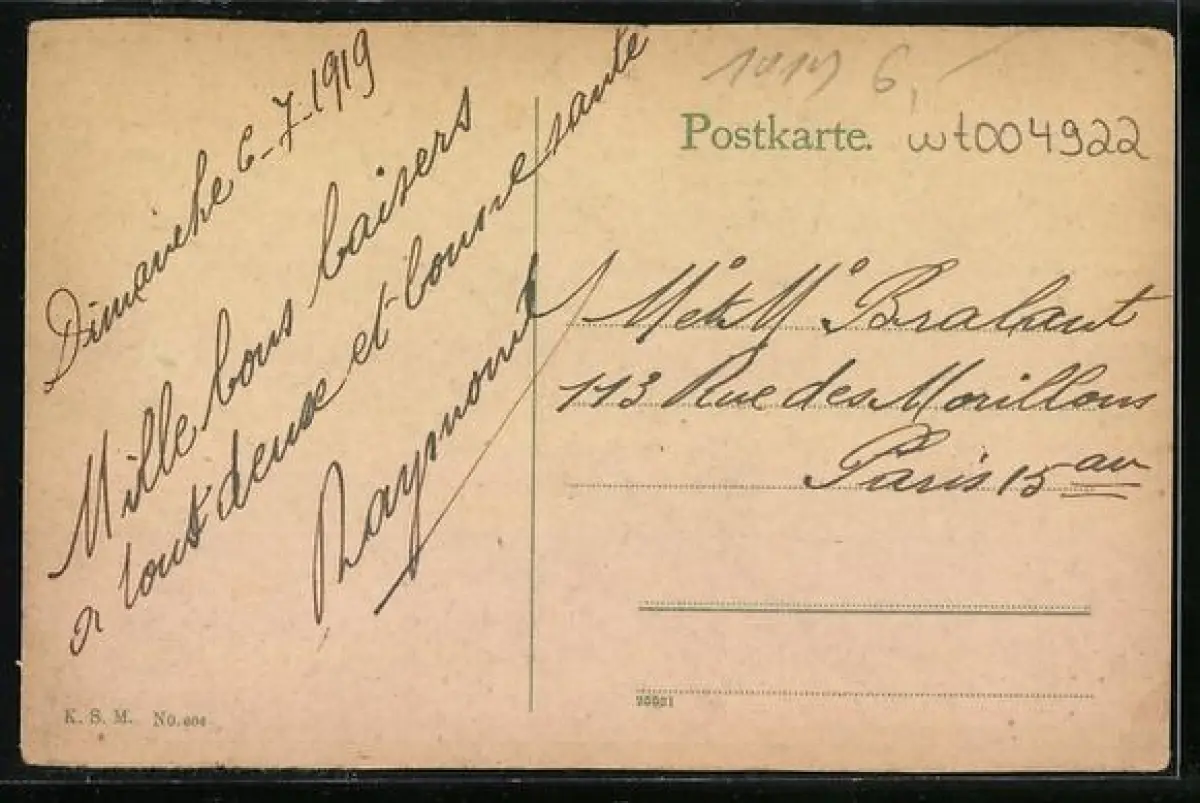 Dimanche 6-7-1919
Mille bons baisers
a tout deux et bonne santé
Raymond
1919 6,-
Postkarte. wt004922
Mr et Me Brabant
113 Rue des Morillons
Paris 15 au
K. S. M. No. 604
20021